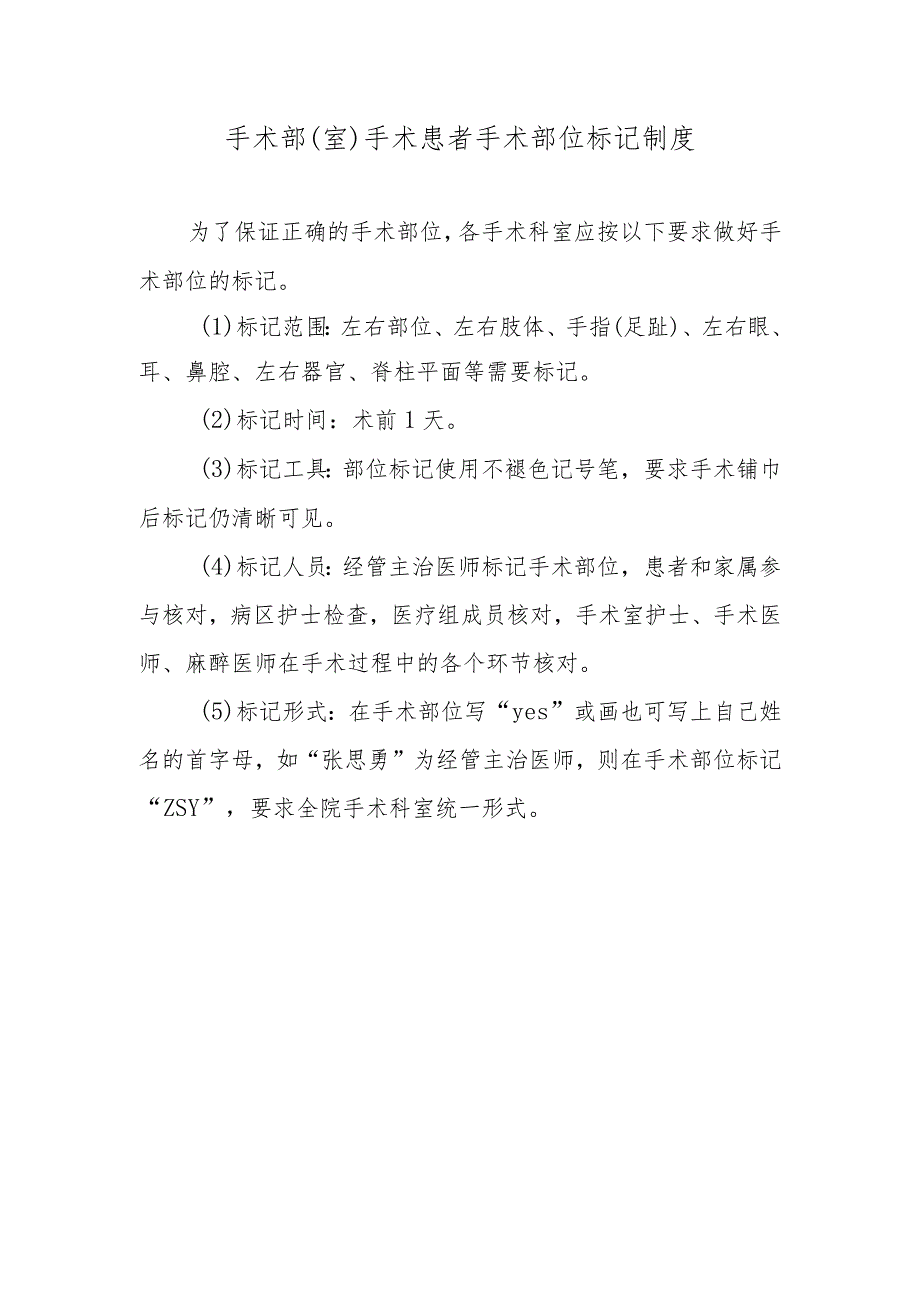 手术部(室)手术患者手术部位标记制度
为了保证正确的手术部位,各手术科室应按以下要求做好手
术部位的标记。
(1)标记范围:左右部位、左右肢体、手指(足趾)、左右眼、
耳、鼻腔、左右器官、脊柱平面等需要标记。
(2)标记时间：术前1天。
(3)标记工具:部位标记使用不褪色记号笔，要求手术铺巾
后标记仍清晰可见。
(4)标记人员:经管主治医师标记手术部位，患者和家属参
与核对，病区护士检查，医疗组成员核对，手术室护士、手术医
师、麻醉医师在手术过程中的各个环节核对。
(5)标记形式：在手术部位写“yes”或画也可写上自己姓
名的首字母，如“张思勇”为经管主治医师，则在手术部位标记
“ZSY”，要求全院手术科室统一形式。